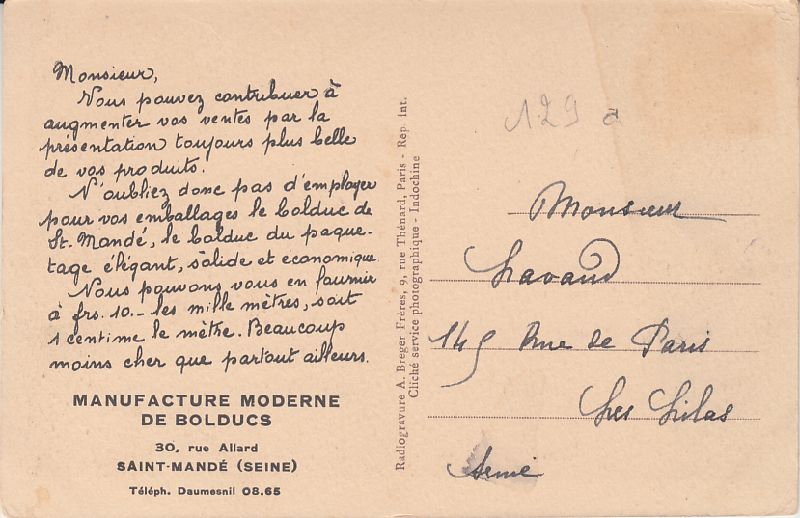 Monsieur,
Vous pouvez contribuer à
augmenter vos ventes par la
présentation toujours plus belle
de vos produits.
N'oubliez donc pas d'employer
pour vos emballages le bolduc de
St. Mandé, le bolduc du paque-
tage élégant, solide et economique.
Nous pouvons vous en fournir
à frs. 10.- les mille mètres, soit
1 centime le mètre. Beaucoup
moins cher que partout ailleurs.
MANUFACTURE MODERNE
DE BOLDUCS
30, rue Allard
SAINT-MANDÉ (SEINE)
Téléph. Daumesnil 08.65
Radiogravure A. Breger Frères, 9, rue Thénard, Paris - Rep. int.
Cliché service photographique - Indochine
129 a
Monsieur
Lavaud
145 Rue de Paris
Les Lilas
Seine